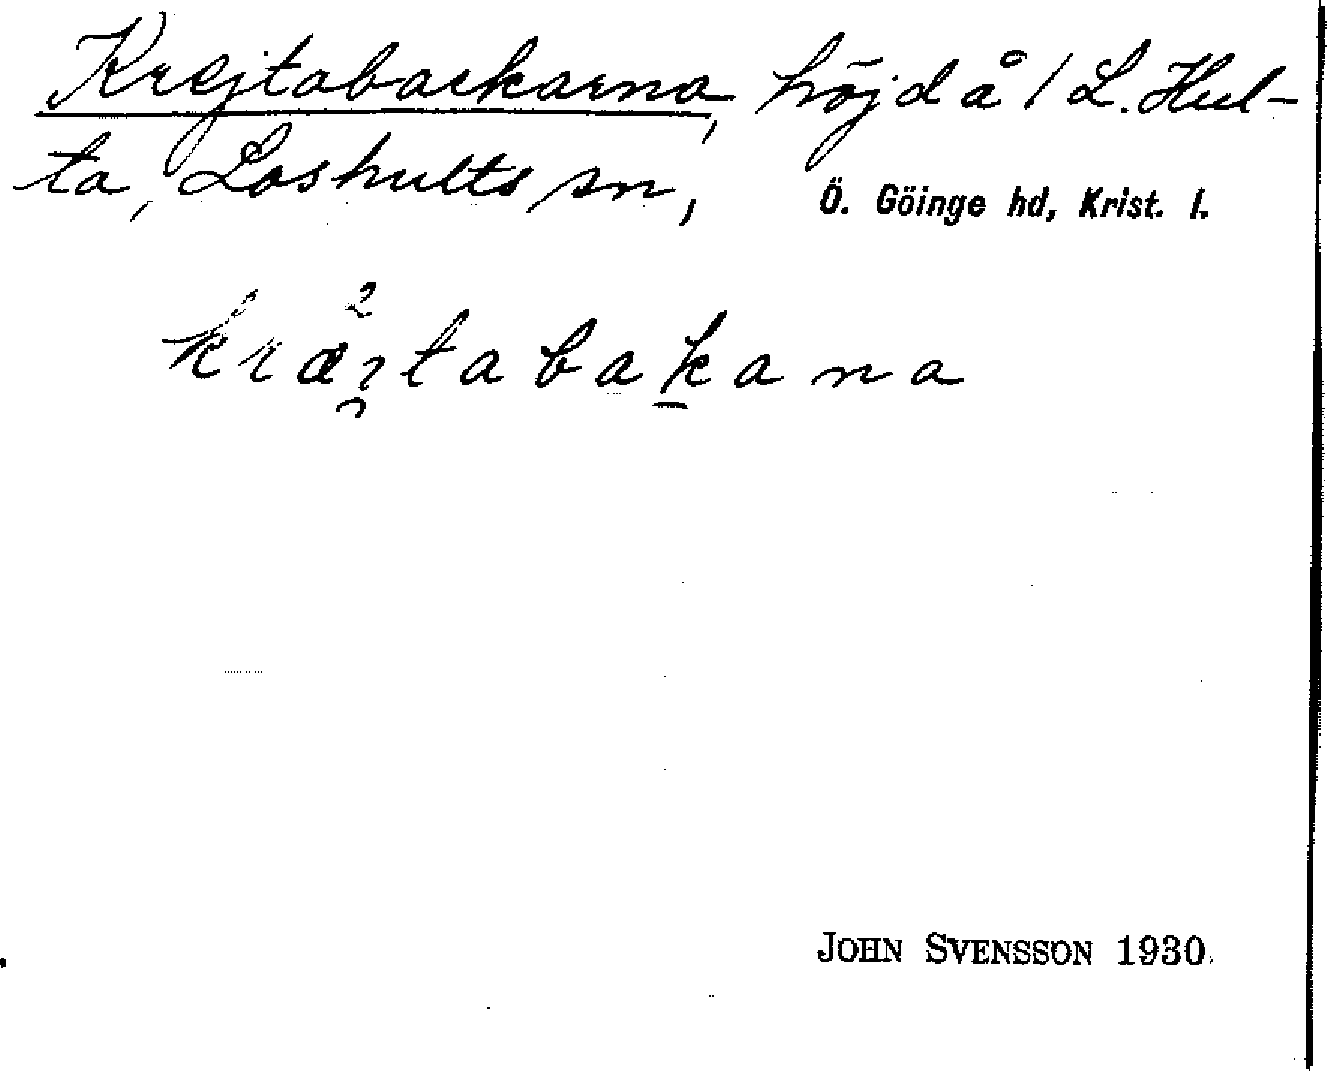 Krejtabackarna, höjd å 1 L. Hul-
ta, Loshults sn, Ö. Göinge hd, Krist. l.
JOHN SVENSSON 1930.